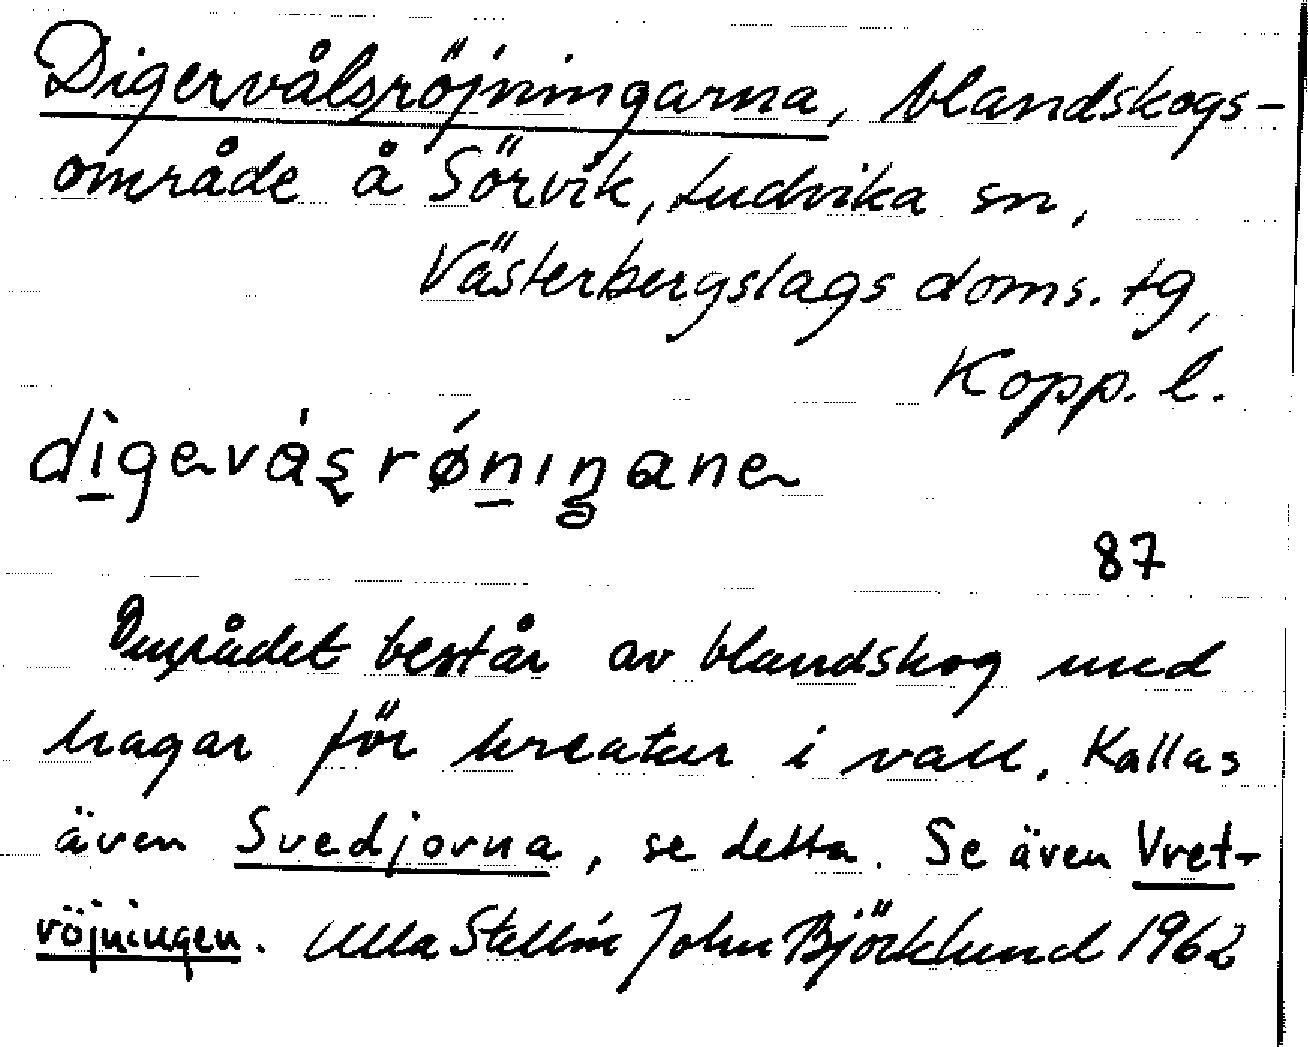 Digervålsröjningarna, blandskogs-
område å Sörvik, Ludvika sn,
Västerbergslags doms. tg,
Kopp. l.
87
Området består av blandskog med
hagar för kreatur i vall. Kallas
även Svedjorna, se detta. Se även Vret-
röjningen. Ulla Stellin John Björklund 1962